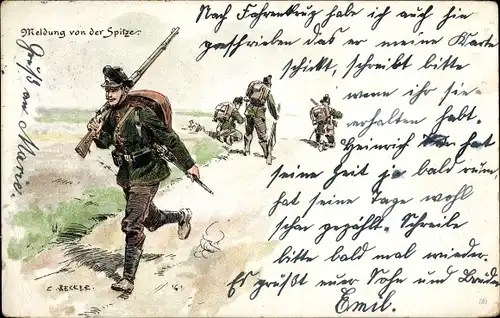 Meldung von der Spitze.
Nach Fahrenkrug habe ich auch hin
geschrieben das er meine Karte
schickt, schreibt bitte
wenn ihr sie
erhalten habt.
Heinrich hat
seine Zeit ja bald rum,
hat seine Tage wohl
schon gezählt. Schreibe
bitte bald mal wieder.
Es grüßt euer Sohn und Bruder
Emil.
Gruß an Marie.
C. BECKER